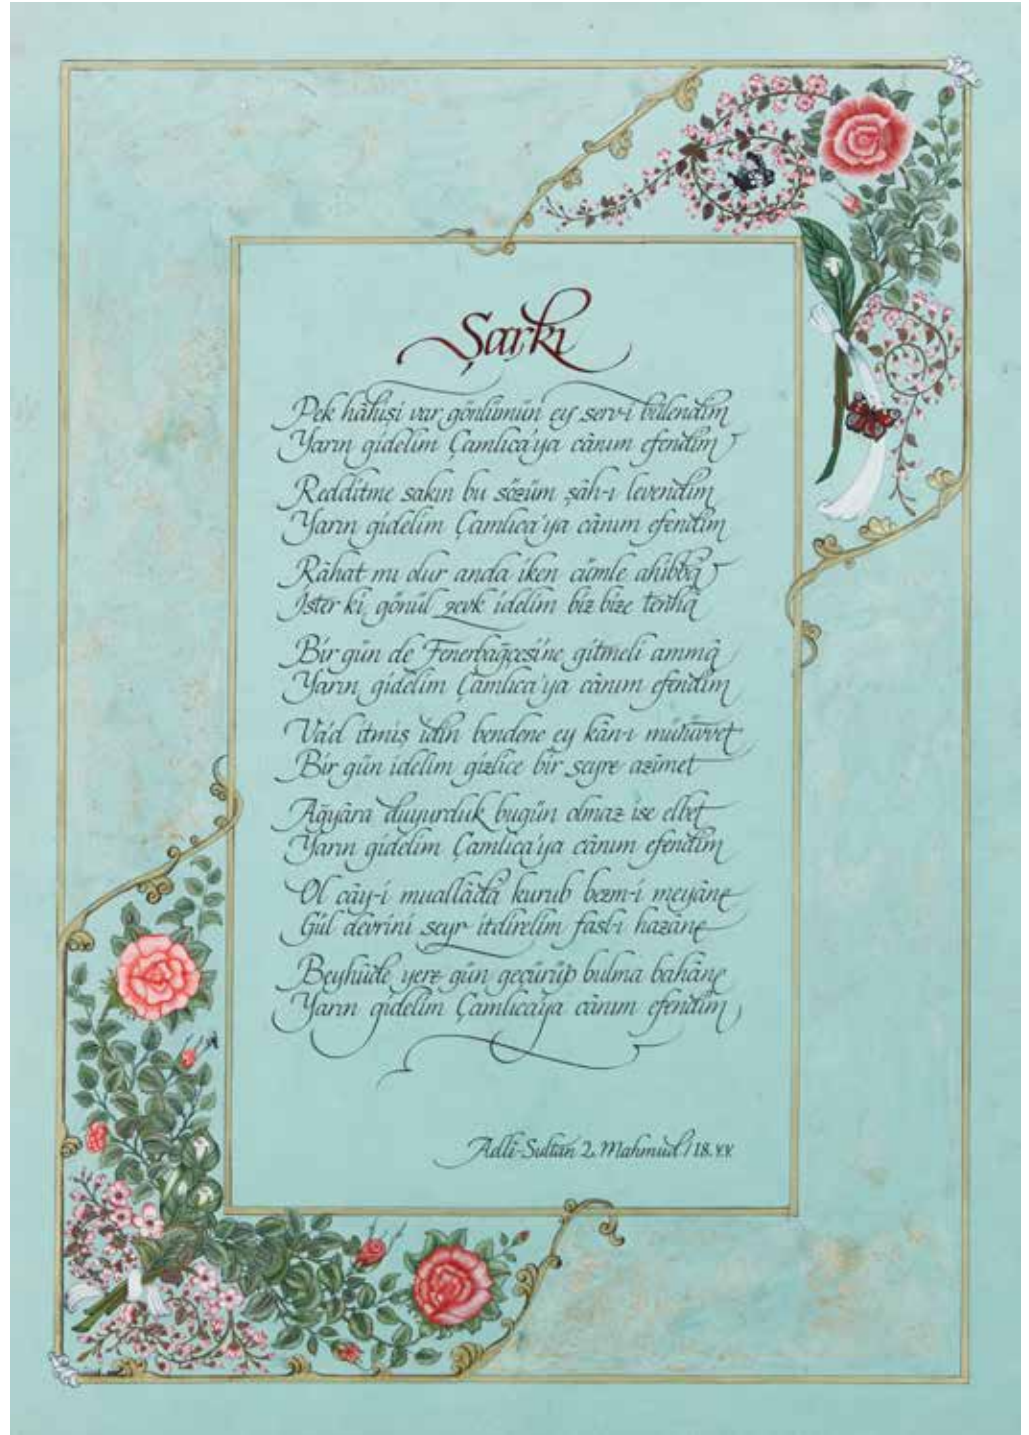 Şarkı
Pek hâhişi var gönlümün ey serv-i bülendim
Yarın gidelim Çamlıca'ya cânım efendim
Redditme sakın bu sözüm şâh-ı levendim
Yarın gidelim Çamlıca'ya cânım efendim
Râhat mı olur anda iken cümle ahibbâ
İster ki gönül zevk idelim biz bize tenhâ
Bir gün de Fenerbağçesine gitmeli ammâ
Yarın gidelim Çamlıca'ya cânım efendim
Vâ'd itmiş idin bendene ey kân-ı mürüvvet
Bir gün idelim gizlice bir seyre azimet
Ağyâra duyurduk bugün olmaz ise elbet
Yarın gidelim Çamlıca'ya cânım efendim
Ol cây-i muallâda kurub bezm-i meyâne
Gül devrini seyr itdirelim fasl-ı hazâne
Beyhûde yere gün geçürüp bulma bahâne
Yarın gidelim Çamlıca'ya cânım efendim
Adlî-Sultan 2. Mahmud / 18. y.y.